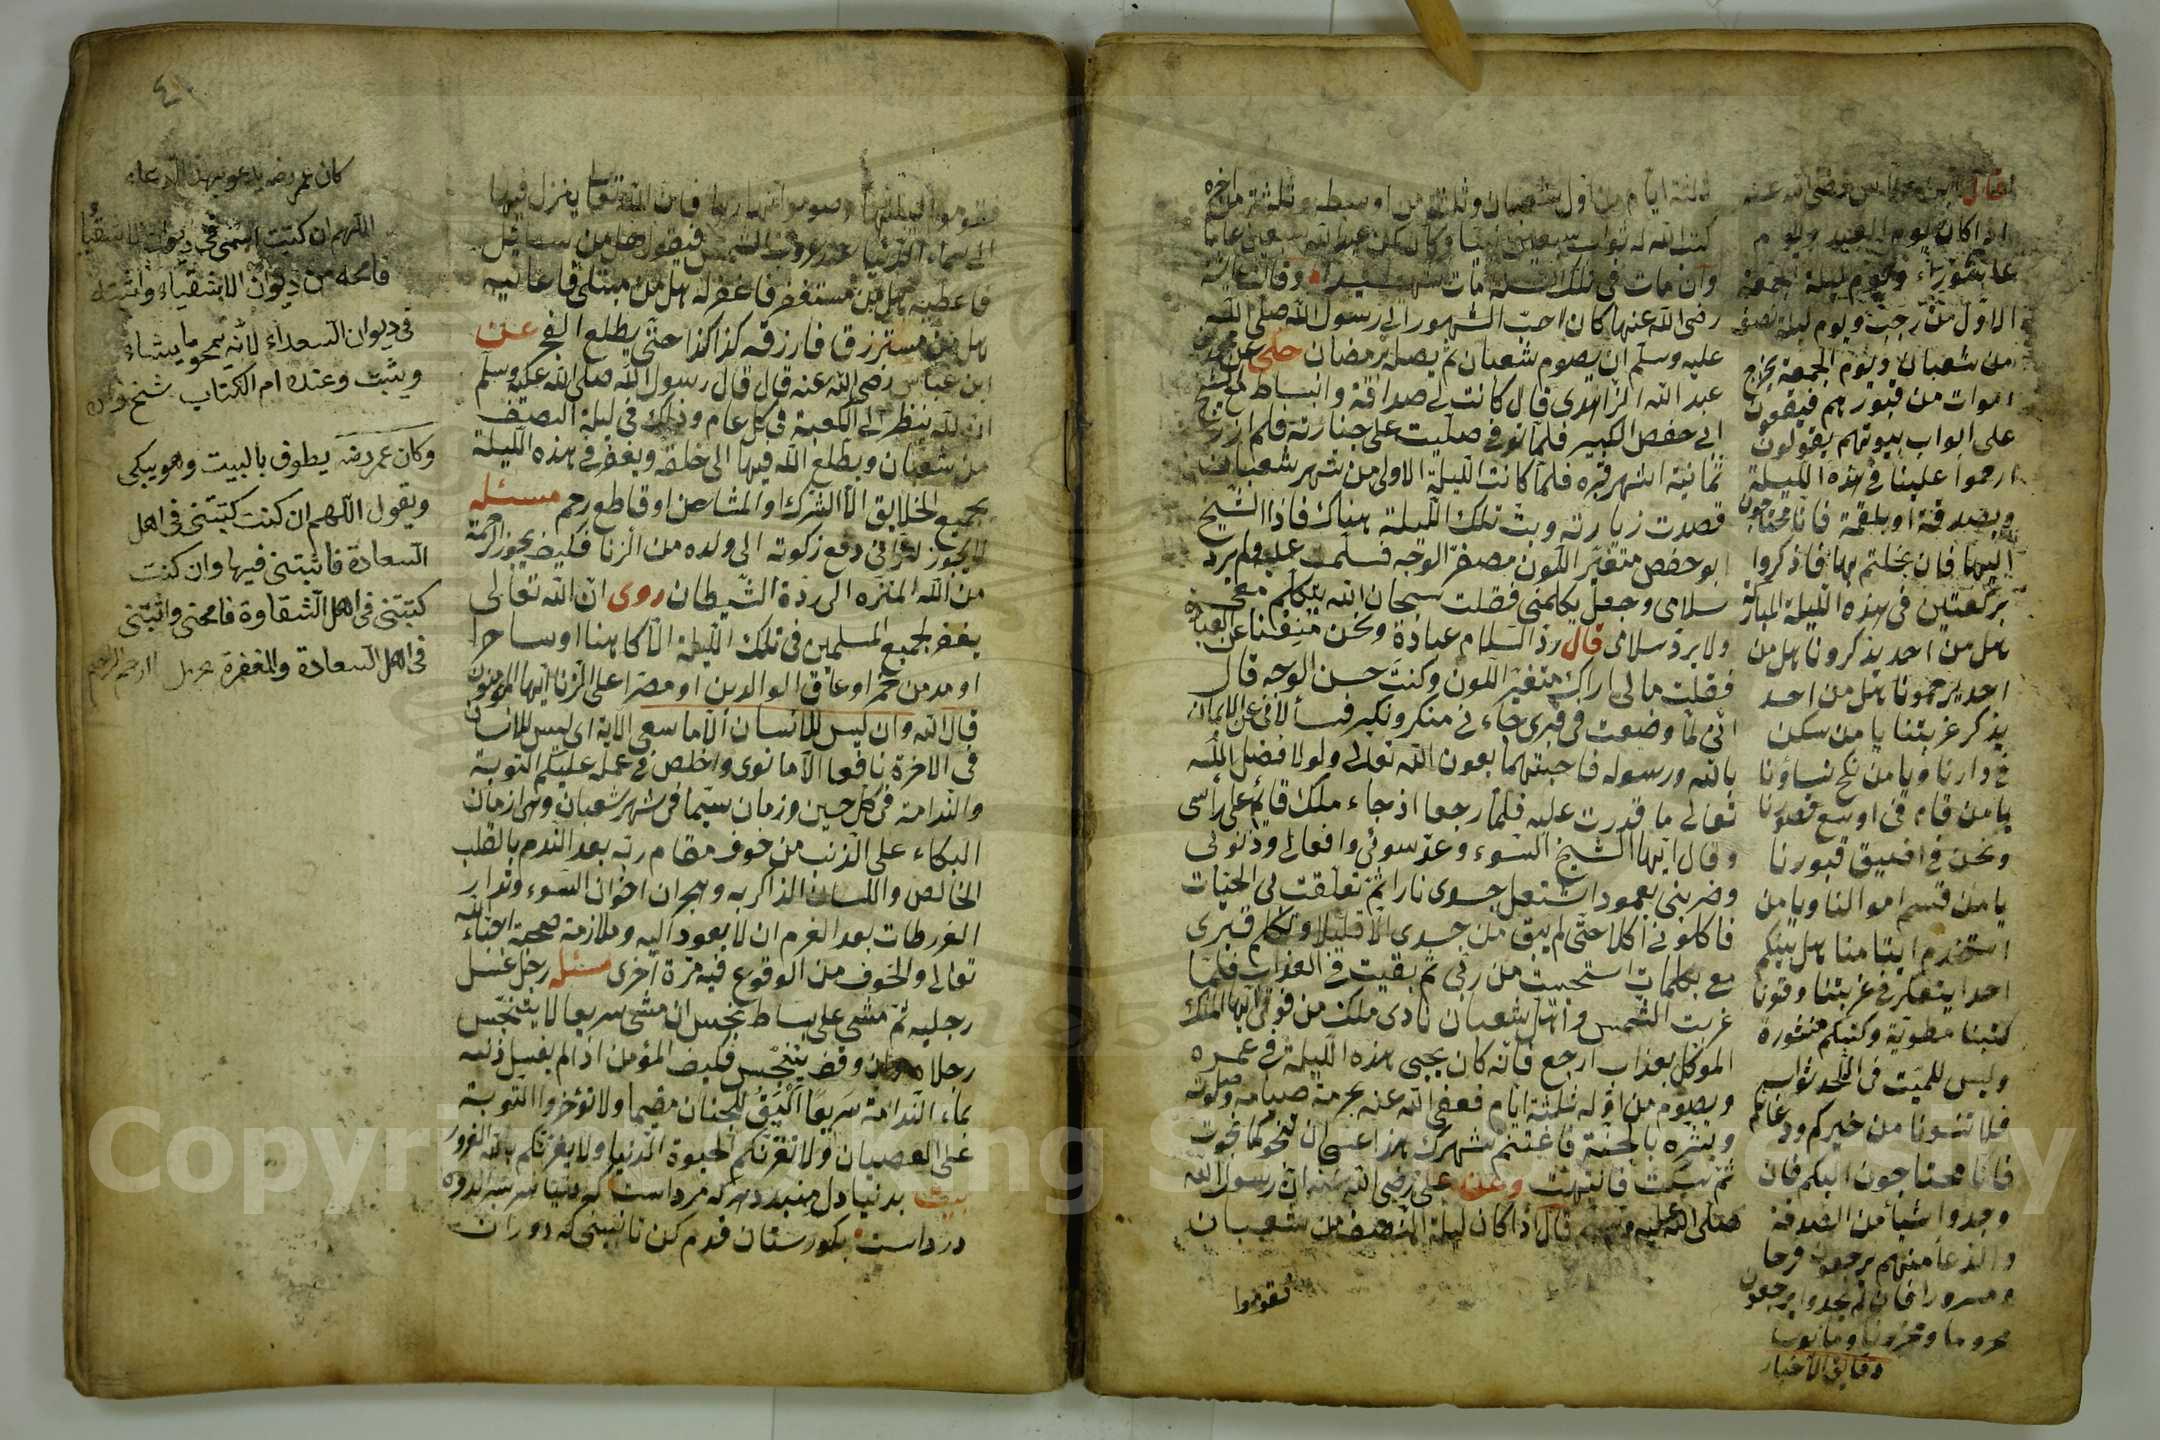 ثلثة ايام من اول شعبان وثلثة من اوسطه وثلثة من آخره
كتب الله له ثواب سبعين نبيا وكان كمن عبد الله سبعين عاما
وان مات في تلك السنة مات شهيدا وقالت عائشة
رضى الله عنها كان احب الشهور الى رسول الله صلى الله
عليه وسلم ان يصوم شعبان ثم يصله برمضان حكى عن محمد بن
عبد الله الزاهدى قال كانت لى صداقة وانبساط مع الشيخ
ابى حفص الكبير فلما توفى صليت على جنازته فلم ازر
ثمانية اشهر قبره فلما كانت الليلة الاولى من شهر شعبان
قصدت زيارته وبت تلك الليلة هناك فاذا الشيخ
ابو حفص متغير اللون مصفر الوجه فسلمت عليه ولم يرد
سلامى وجعل يكلمنى فقلت سبحان الله يتكلم معى
ولا يرد سلامى قال رد السلام عبادة ونحن منعنا عن العبادة
فقلت مالى اراك متغير اللون وكنت حسن الوجه قال
انى لما وضعت فى قبرى جاءنى منكر ونكير فسألانى عن الايمان
بالله ورسوله فاجبتهما بعون الله تعالى ولولا فضل الله
تعالى ما قدرت عليه فلما رجعا اذ جاء ملك قائم على رأسى
وقال ايها الشيخ السوء وعد سوئى وافعالى وذنوبى
وضربنى بعمود اشتعل جسدى نارا ثم تعلقت بى الحيات
فاكلونى اكلا حتى لم يبق من جسدى الا قليلا وتكلم قبرى
معى بكلمات استحييت من ربى ثم بقيت فى العذاب فلما
غربت الشمس واهل شعبان نادى ملك من فوقى ايها الملك
الموكل بعذاب ارجع فانه كان يحيى هذه الليلة فى عمره
ويصوم من اوله ثلثة ايام فعفى الله عنه بحرمة صيامه وصلوته
وبشره بالجنة فاغتنم شهرك هذا عسى ان تنجو كما نجوت
ثم سكت فانتبهت وعن على رضى الله عنه ان رسول الله
صلى الله عليه وسلم قال اذا كان ليلة النصف من شعبان
فقوموا
قال ابن عباس رضى الله عنه
اذا كان يوم العيد ويوم
عاشوراء ويوم ليلة الجمعة
الاول من رجب ويوم ليلة نصف
من شعبان ويوم الجمعة يخرج
اموات من قبورهم فيقفون
على ابواب بيوتهم يقولون
ارحموا علينا فى هذه الليلة
وبصدقة او بلقمة فانا محتاجون
اليها فان بخلتم بها فاذكروا
بركعتين فى هذه الليلة المباركة
هل من احد يذكرونا هل من
احد يرحمونا هل من احد
يذكر غربتنا يا من سكن
فى دارنا ويا من نكح نساؤنا
يا من قام فى اوسع قصورنا
ونحن فى اضيق قبورنا
يا من قسم اموالنا ويا من
استخدم ايتامنا هل بينكم
احد يتفكر فى غربتنا وقونا
كتبنا مطوية وكتبكم منشورة
وليس للميت فى اللحد ثواب
فلا تنسونا من خيركم ودعائكم
فانا محتاجون اليكم فان
وجدوا شيأ من الصدقة
والدعا منهم يرجعون فرحا
ومسرورا فان لم يجدوا يرجعون
محروما ومحزونا
دقايق الاخبار
فقوموا ليلتها وصوموا نهارها فان الله تعالى ينزل فيها
الى سماء الدنيا عند غروب الشمس فيقول هل من سائل
فاعطيه هل من مستغفر فاغفر له هل من مبتلى فاعافيه
هل من مسترزق فارزقه كذا كذا حتى يطلع الفجر عن
ابن عباس رضى الله عنه قال قال رسول الله صلى الله عليه وسلم
ان الله ينظر الى الكعبة فى كل عام وذلك فى ليلة النصف
من شعبان ويطلع الله فيها الى خلقه ويغفر فى هذه الليلة
بجميع الخلايق الا الشرك او المشاحن او قاطع رحم مسئلة
لا يجوز لزانى دفع زكوته الى ولده من الزنا فكيف يجوز الرحمة
من الله المنزه الى ردة الشيطان روى ان الله تعالى
يغفر لجميع المسلمين فى تلك الليلة الا كاهنا او ساحرا
او مدمن خمر او عاق الوالدين او مصرا على الزنا ايها المؤمنون
قال الله وان ليس للانسان الا ما سعى الاية اى ليس للانسان
فى الاخرة نافعا الا ما نوى واخلص فى عمله عليكم التوبة
والندامة فى كل حين وزمان سيما فى شهر شعبان وهى ازمان
البكاء على الذنب من خوف مقام ربه بعد الندم بالقلب
الخالص واللسان الذاكر به وهجران اخوان السوء وتدارك
الفرطات بعد العزم ان لا يعود اليه وملازمة صحبة احباء الله
تعالى والخوف من الوقوع فيه مرة اخرى مسئلة رجل غسل
رجليه ثم مشى على بساط نجس ان مشى سريعا لا يتنجس
رجلاه وان وقف يتنجس فكيف المؤمن اذا لم يغسل ذنبه
بماء الندامة سريعا اليق للجنان مقيما ولا تؤخروا التوبة
على العصيان ولا تغرنكم الحيوة الدنيا ولا يغرنكم بالله الغرور
بيت بدنيا دل نبندد هر كه مرد است كه دنيا سربسر اندوه
درد است بكورستان قدم كن تا ببينى كه دوران
٤١
كان عمر رضه يدعو بهذا الدعاء
اللهم ان كتبت اسمى فى ديوان الاشقياء
فامحه من ديوان الاشقياء واثبته
فى ديوان السعداء لانه يمحو ما يشاء
ويثبت وعنده ام الكتاب
وكان عمر رضه يطوف بالبيت وهو يبكى
ويقول اللهم ان كنت كتبتنى فى اهل
السعادة فاثبتنى فيها وان كنت
كتبتنى فى اهل الشقاوة فامحنى واثبتنى
فى اهل السعادة والمغفرة
Copyright © King Saud University